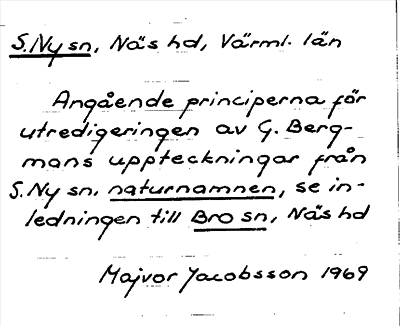 S. Ny sn, Näs hd, Värml. län
Angående principerna för
utredigeringen av G. Berg-
mans uppteckningar från
S. Ny sn. naturnamnen, se in-
ledningen till Bro sn, Näs hd
Majvor Jacobsson 1969